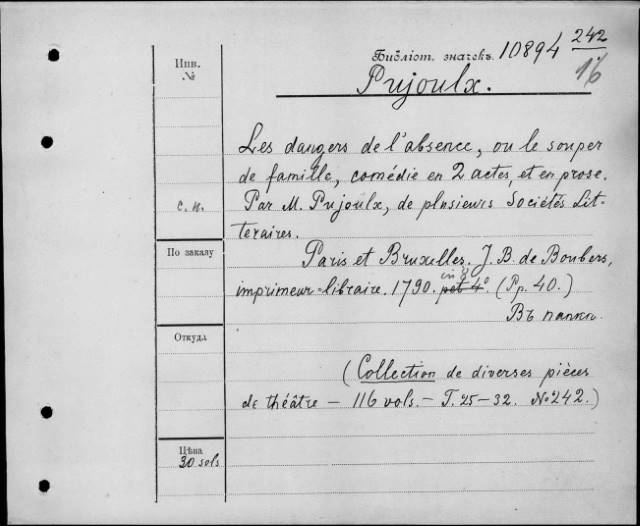 Библіот. значекъ. 10894 242
16
Pujoulx.
Инв.
№
Les dangers de l'absence, ou le souper
de famille, comédie en 2 actes, et en prose.
с. н. Par M. Pujoulx, de plusieurs Sociétés Lit-
téraires.
По заказу
Paris et Bruxelles. J. B. de Boubers,
in 8°
imprimeur=libraire. 1790. pet 4°. (Pp. 40.)
Въ папкѣ.
Откуда
(Collection de diverses pièces
de théâtre – 116 vols. – T. 25–32. No 242.)
Цѣна
30 sols